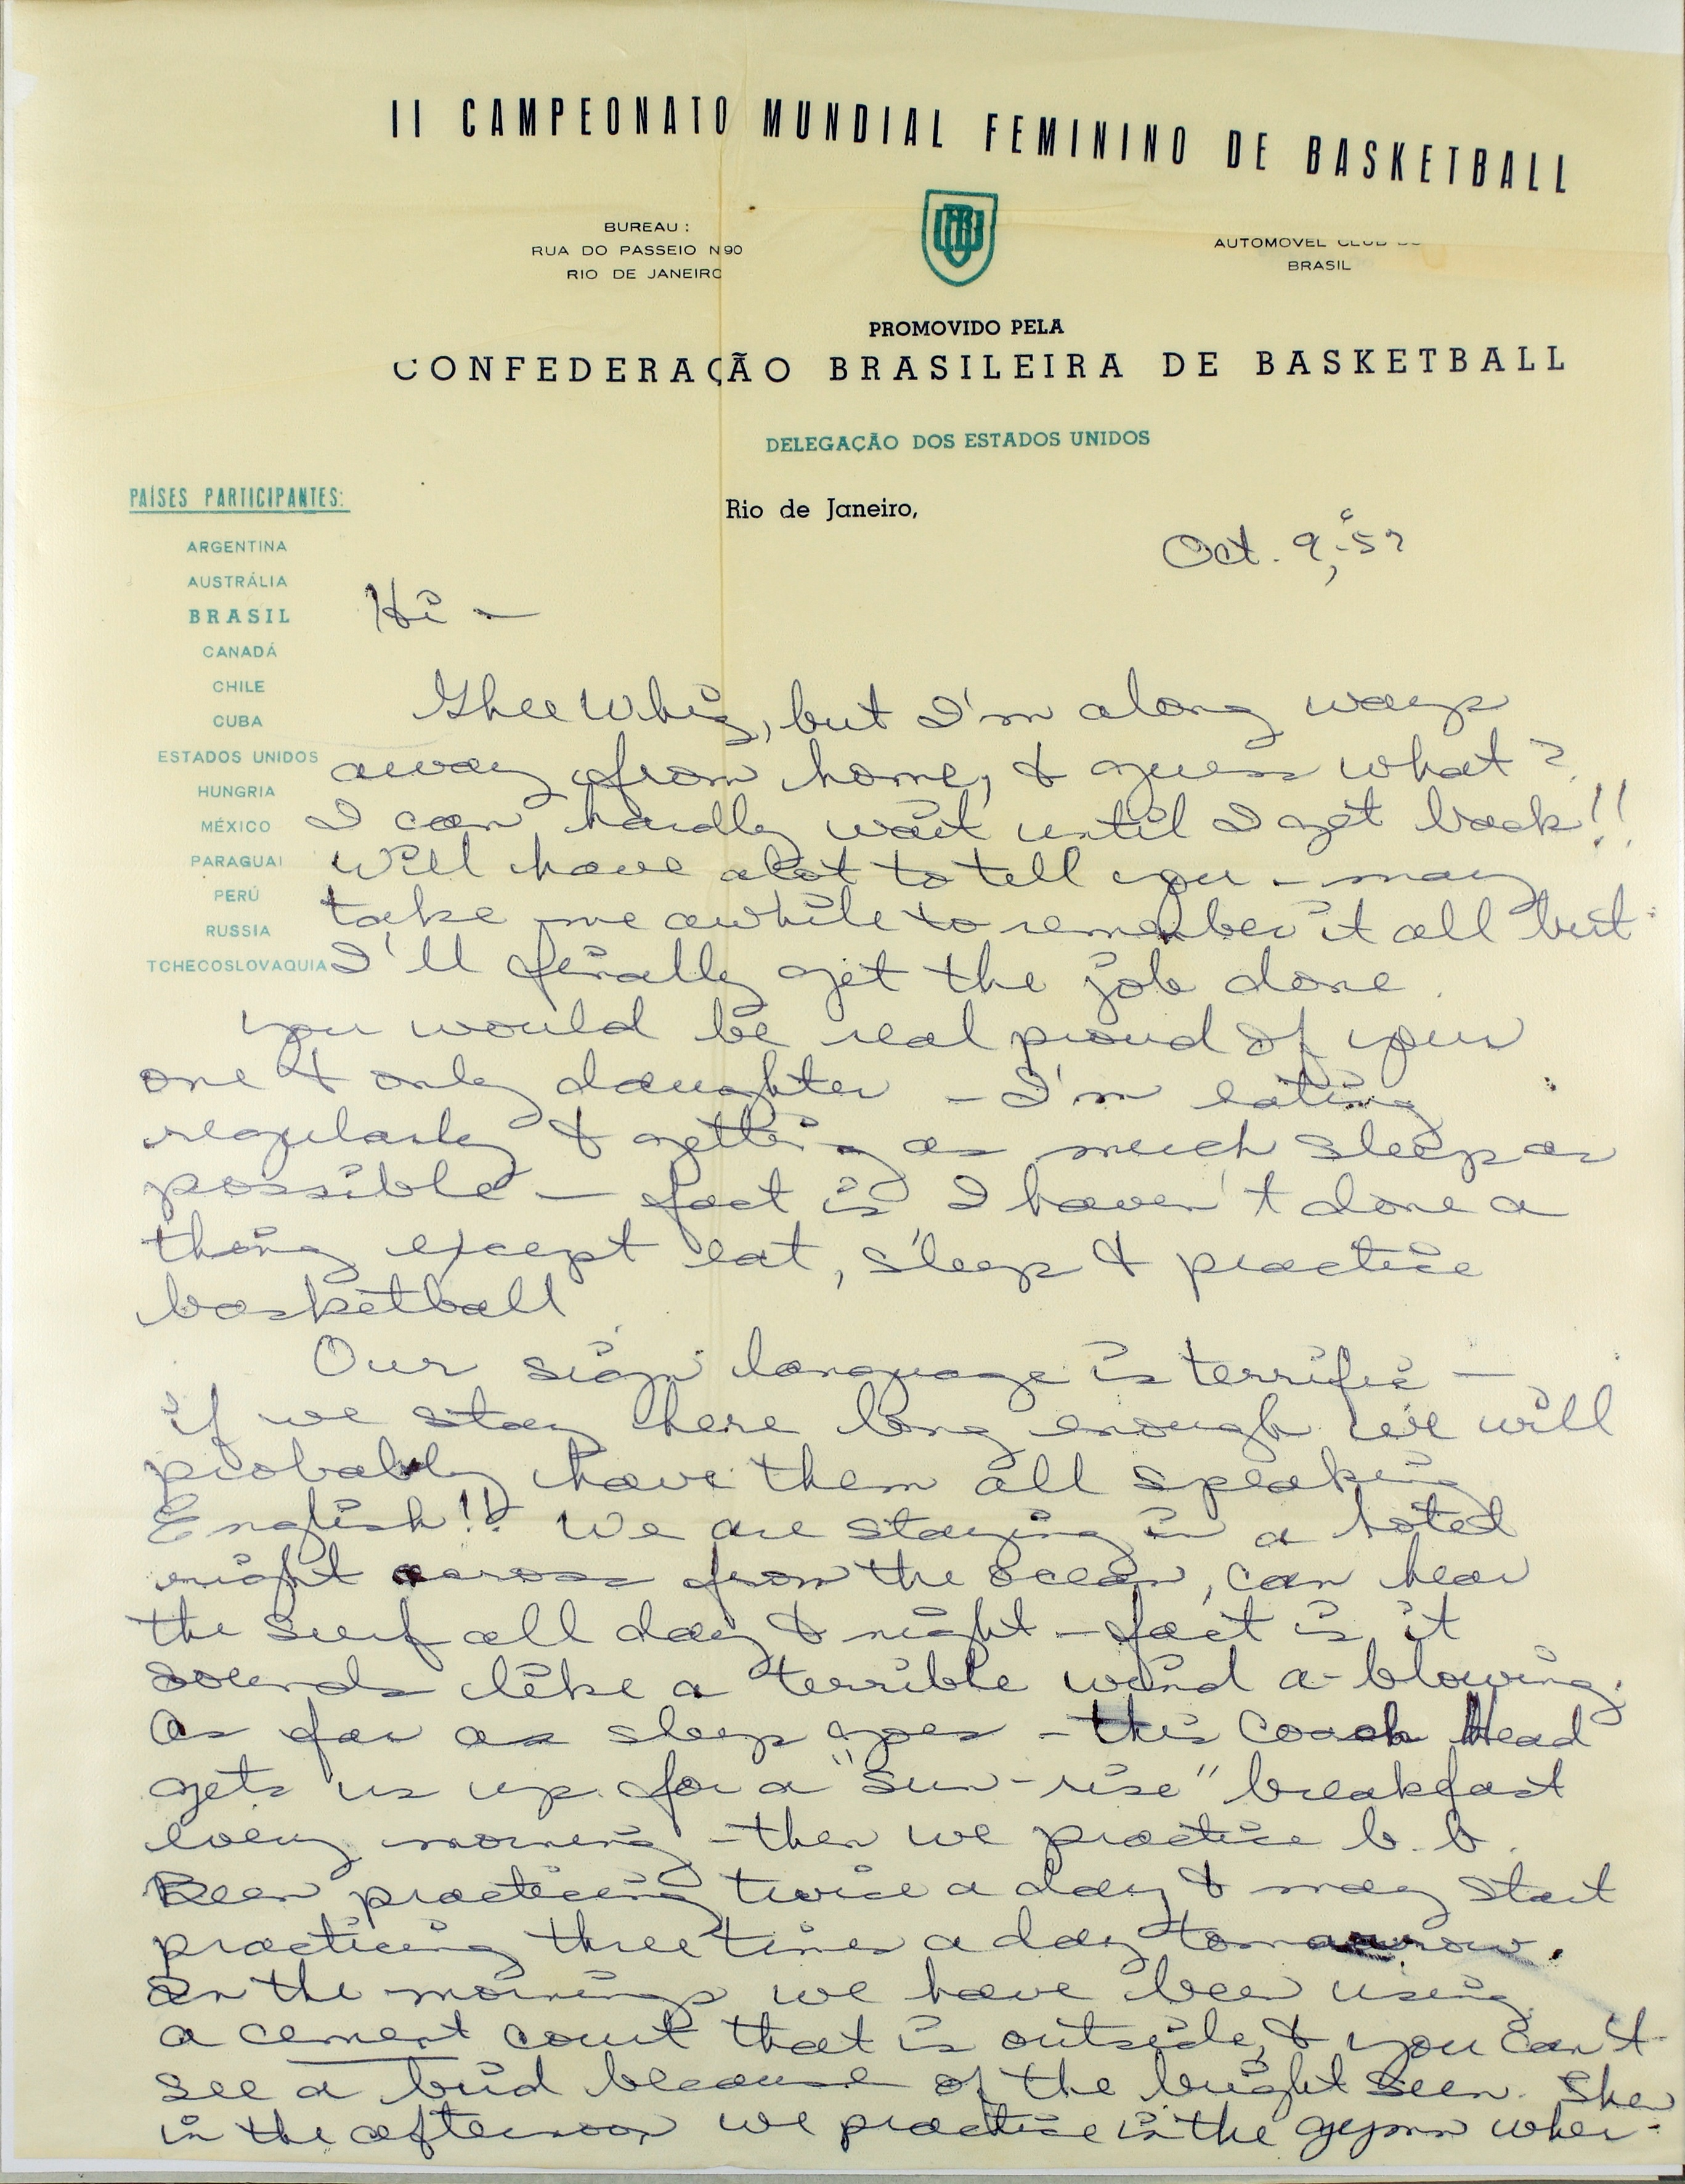 II CAMPEONATO MUNDIAL FEMININO DE BASKETBALL
BUREAU :
RUA DO PASSEIO N 90
RIO DE JANEIRO
AUTOMOVEL CLUB DO
BRASIL
PROMOVIDO PELA
CONFEDERAÇÃO BRASILEIRA DE BASKETBALL
DELEGAÇÃO DOS ESTADOS UNIDOS
PAÍSES PARTICIPANTES:
ARGENTINA
AUSTRÁLIA
BRASIL
CANADÁ
CHILE
CUBA
ESTADOS UNIDOS
HUNGRIA
MÉXICO
PARAGUAI
PERÚ
RUSSIA
TCHECOSLOVAQUIA
Rio de Janeiro,
Oct. 9, '57
Hi —
Ghee Whiz, but I'm along ways
away from home, & guess what?
I can hardly wait until I get back!!
Will have alot to tell you - may
take me awhile to remember it all but
I'll finally get the job done.
You would be real proud of your
one & only daughter - I'm eating
regularly & getting as much sleep as
possible — fact is I haven't done a
thing except eat, sleep & practice
basketball
Our sign language is terrific —
if we stay here long enough we will
probably have them all speaking
English!! We are staying in a hotel
right across from the ocean, can hear
the surf all day & night - fact is it
sounds like a terrible wind a-blowing.
As far as sleep goes - this Coach Head
gets us up for a "sun-rise" breakfast
every morning - then we practice b.b.
Been practicing twice a day & may start
practicing three times a day tomorrow.
In the mornings we have been using
a cement court that is outside, & you can't
see a bud because of the bright sun. Then
in the afternoon we practice in the gymn wher-